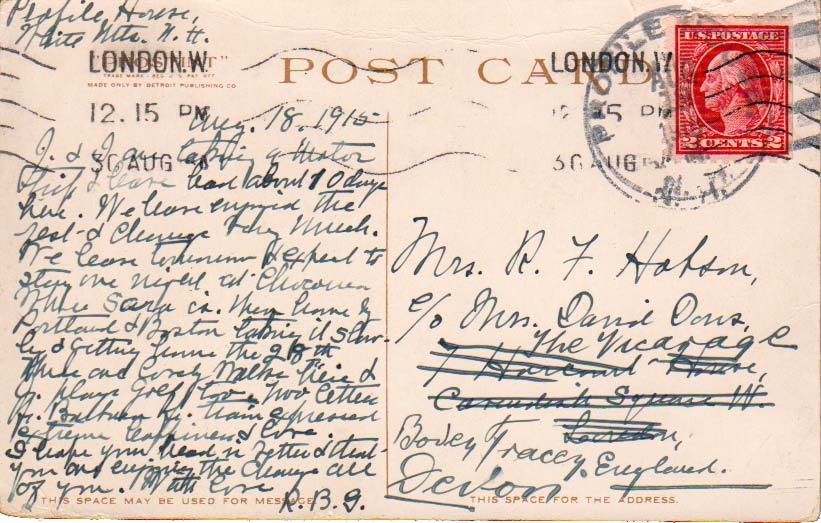 Profile House,
White Mts. N. H.
"PHOSTINT"
TRADE MARK - REG. U.S. PAT. OFF.
MADE ONLY BY DETROIT PUBLISHING CO.
POST CARD
LONDON. W.
12. 15 PM
30 AUG
LONDON. W.
12. 15 PM
30 AUG
PROFILE
N. H.
U.S. POSTAGE
2 CENTS 2
Aug. 18. 1915
J. & I are taking a Motor
trip & have had about 10 days
here. We have enjoyed the
rest & change very much.
We leave tomorrow & expect to
stay one night at Chocorua
where Sara is. then home by
Portland & Boston taking it slow-
ly & getting home the 28th
There are lovely walks here &
J. plays golf too. Two letters
fr. train expressed
extreme happiness & love.
I hope your head is better & that
you are enjoying the change all
of you. With love
K. B. G.
THIS SPACE MAY BE USED FOR MESSAGE.
Mrs. R. F. Hobson,
c/o Mrs. David Dons,
The Vicarage
7 Harcourt House,
Cavendish Square W.
London,
Bovey Tracey. England.
Devon
THIS SPACE FOR THE ADDRESS.